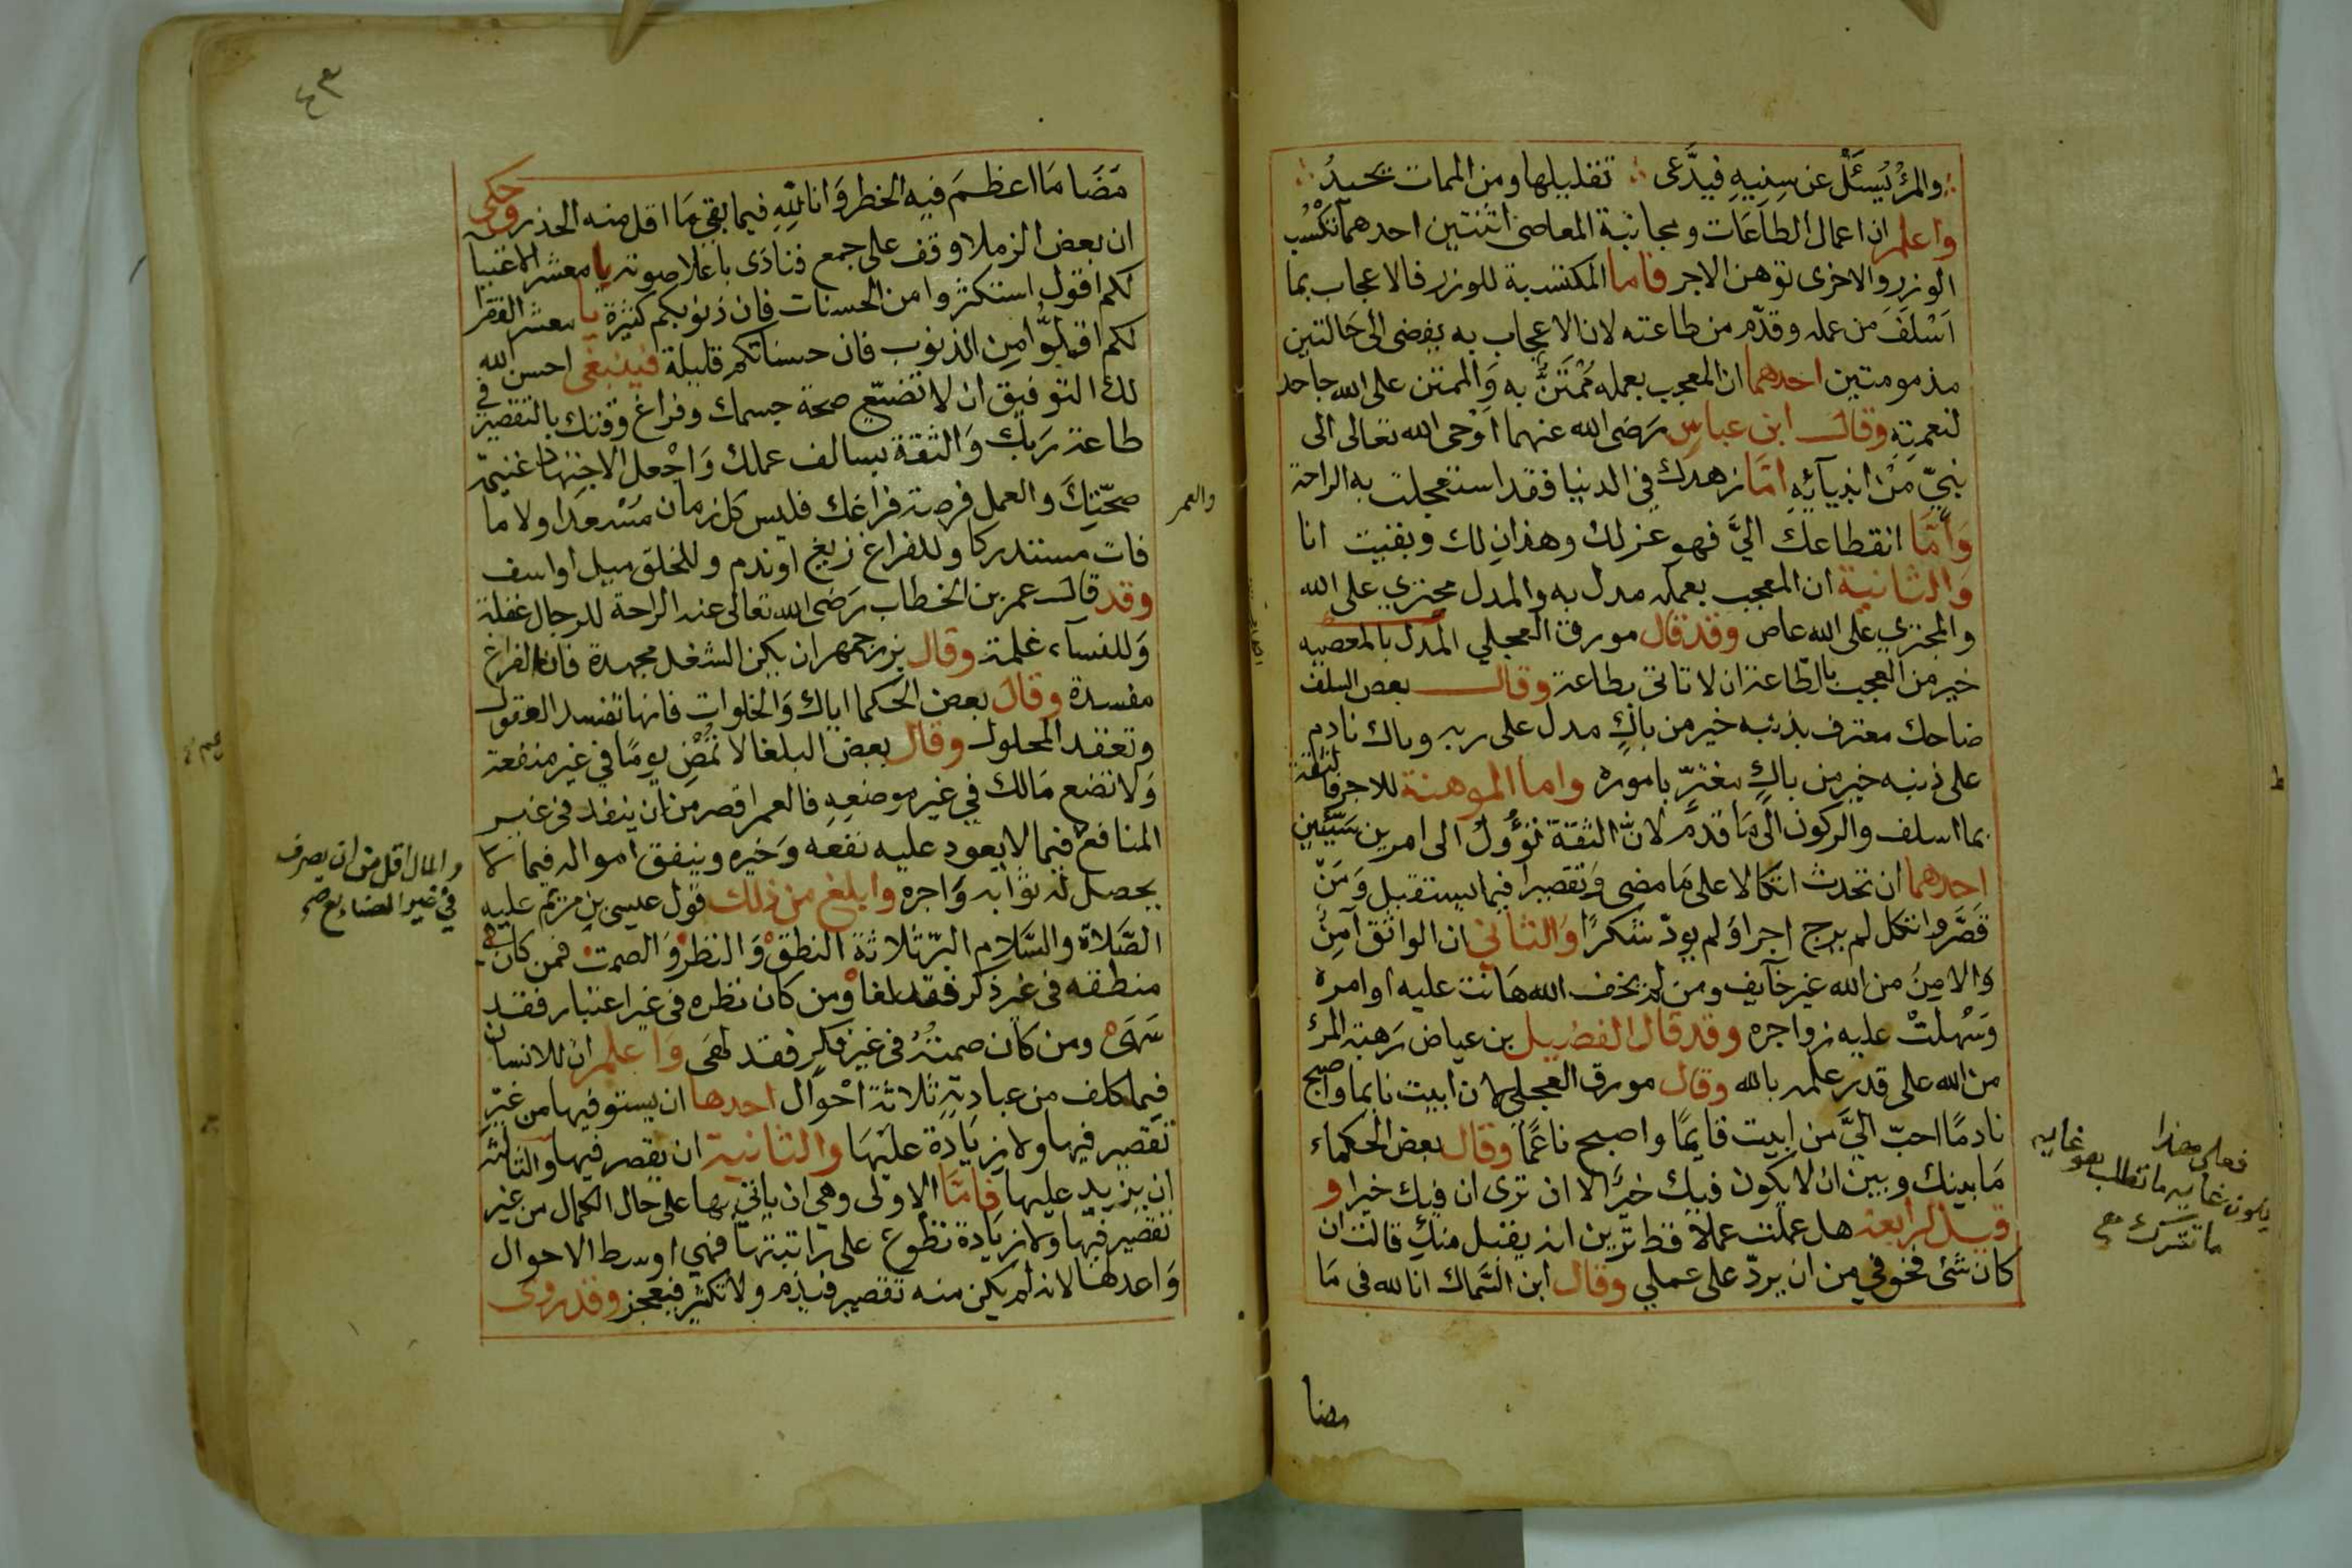 والمرُ يُسئَلُ عن سِنِيهِ فيدَّعى ∴ تقليلها ومن الممات يحيدُ ∴
واعلم ان اعمال الطاعَات ومجانبة المعاصى اثنتين احدهما تكسُب
الوزر والاخرى توهن الاجر فاما المكتسبة للوزر فالاعجاب بما
اَسْلَفَ من عمله وقدّم من طاعته لان الاعجاب به يفضى الى حَالتين
مذمومتين احدهما ان المعجب بعمله مُمْتَنٌّ به وَالممتن على الله جاحد
لنعمتِهِ وقال ابن عباسٍ رَضى الله عنهما اَوْحى الله تعالى الى
نبيّ مَنْ انبيآئِهِ امّا زهدك في الدنيا فقد استعجلت به الراحة
وَاَمَّا انقطاعك اليَّ فهو عز لك وهذانِ لك وبقيت انا
وَالثانية ان المعجب بعمله مدل به والمدل مجتري على الله
والمجتري على الله عاص وقد قال مورق العجلي المدل بالمعصيه
خير من العجب بالطاعة ان لا تاتى بطاعة وقال بعض السلف
ضاحك معترف بذنبه خير من باكٍ مدل على ربه وباك نادم
على ذنبه خير من باكٍ مغترٍّ باموره واما الموهنة للاجر فالثقة
بما اسلف والركون الى مَا قدّمَ لانّ الثقة تؤُولُ الى امرين سَيّئين
احدهما ان تحدث اتكالا على مَا مضى وَتقصيرا فيما يستقبل وَمَنْ
قَصَّر واتكل لم يرج اجرا وَلم يودّ شكرًا وَالثاني ان الواثق آمِنٌ
وَالامِنَ من الله غير خآيف ومن لم يخف الله هَانت عليه اوامره
وَسْهلتْ عليه زواجره وقد قال الفضيل بن عياض رَهبة المرُ
من الله على قدر علمه بالله وقال مورق العجلي لان ابيت نايما واصبح
نادمًا احبّ اليَّ من ابيت قايمًا واصبح ناعمًا وقال بعض الحكماء
مَا بينك وبين ان لا يكون فيك خيرًا الا ان ترى ان فيك خيرا و
قيل لرابعة هل عملت عملا قط ترين انه يقبل منكِ قالت ان
كان شئ فخوفي من ان يردّ على عملي وقال ابن السَّماك انا لله فى مَا
فعلى هذا
يكون غايه ما تطلب هو غايه
ما تترك صح
مضا
٤٣
مَضَا مَا اعظمَ فيه الخطر وَانا لِلّهِ فيما بقي مَا اقل منه الحذر وحكى
ان بعض الزملا وقف على جمع فنادَى باعلا صوته يا معشر الاغنيا
لكم اقول استكثروا من الحسنات فان ذنوبكم كثيرة يا معشر الفقرا
لكم اقول اقلّوا من الذنوب فان حسناتكم قليلة فينبغى احسن الله
لك التوفيق ان لا تضيّع صحة جسمك وفراغ وقتك بالتقصير في
طاعة رَبك وَالثقة بسالف عملك وَاجْعل الاجتهاد غنيمة
صحّتِكَ والعمل فرصة فراغك فليس كل زمان مَسْعدا ولا ما
والعمر
فات مستدركا وللفراغ زيغ او ندم وللخلوَ ميل او اسف
وقد قال عمر بن الخطاب رَضى الله تعالى عنه الراحة للرجال غفلة
وَللنسآء غلمة وقال بزرجمهر ان يكن الشغل مجهدة فان الفراغ
مفسدة وقال بعض الحكما اياك وَالخلوات فانها تفسد العقول
وتعقد المحلول وقال بعض البلغا لا تُمْضِ يومًا في غير منفعة
وَلا تضع مَالك في غير موضعِهِ فالعمر اقصر من ان ينفد فى غير
المنافع فيما لا يعود عليه نفعه وَخيره وينفق امواله فيما لا
والمال اقل من ان يصرف
في غير الصناىع صح
يحصل له ثوابه وَاجره وابلغ من ذلك قول عيسى بن مريم عليه
الصَّلاة والسَّلام البرّ ثلاثة النطق وَالنظر وَالصمت فمن كان
منطقه فى غير ذكر فقد لغا ومن كان نظره فى غير اعتبار فقد
سَهَى ومن كان صمتهُ فى غير فكرٍ فقد لَهى وَاعلم ان للانسان
فيما كلف من عبادتِهِ ثلاثة احْوال احدها ان يستوفيها من غير
تقصير فيها ولا زيَادة علَيْهَا والثانية ان يقصر فيها والثالثة
ان يزيد عليها فامّا الاولى وهي ان ياتي بها على حال الكمال من غير
تقصير فيها ولا زيَادة تطوع على راتبتها فهي اوسط الاحوال
وَاعدلها لانه لم يكن منه تقصير فيذم ولا تكثير فيعجز وقد روى